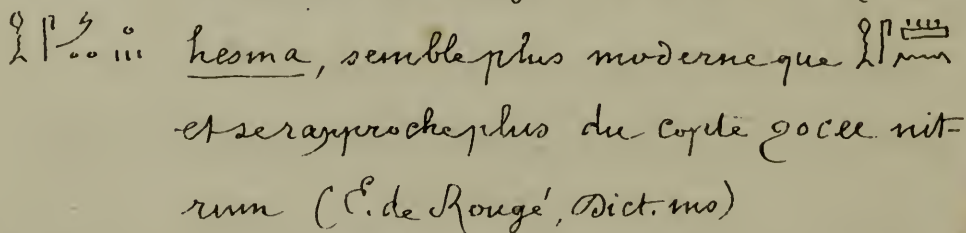 𓎛𓋴𓌳 hesma, semble plus moderne que 𓎛𓋴𓏠𓈖
et se rapproche plus du copte ϩⲟⲥⲙ nit-
rum (E. de Rougé, Dict. ms)